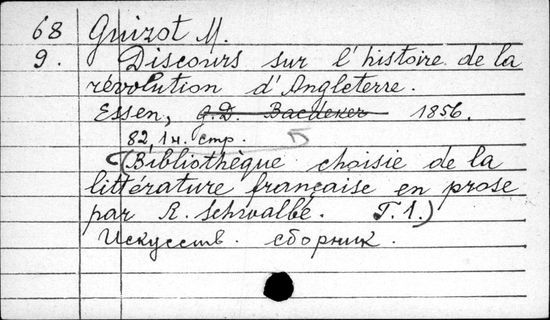 68 Guizot M.
9. Discours sur l'histoire de la
révolution d'Angleterre.
Essen, G.D. Baedeker 1856.
82, 1 н. стр.
(Bibliothèque choisie de la
littérature française en prose
par R. Schwalbé. T.1.)
Искусств. сборник.